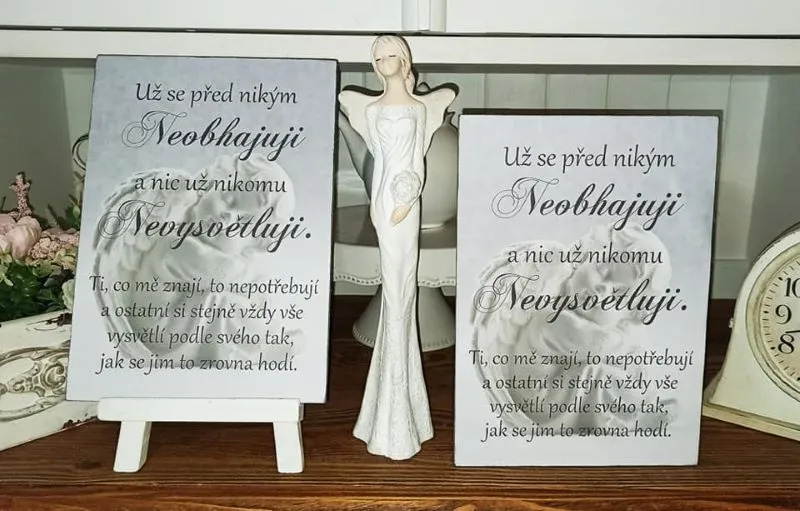 Už se před nikým
Neobhajuji
a nic už nikomu
Nevysvětluji.
Ti, co mě znají, to nepotřebují
a ostatní si stejně vždy vše
vysvětlí podle svého tak,
jak se jim to zrovna hodí.
Už se před nikým
Neobhajuji
a nic už nikomu
Nevysvětluji.
Ti, co mě znají, to nepotřebují
a ostatní si stejně vždy vše
vysvětlí podle svého tak,
jak se jim to zrovna hodí.
10
9
8